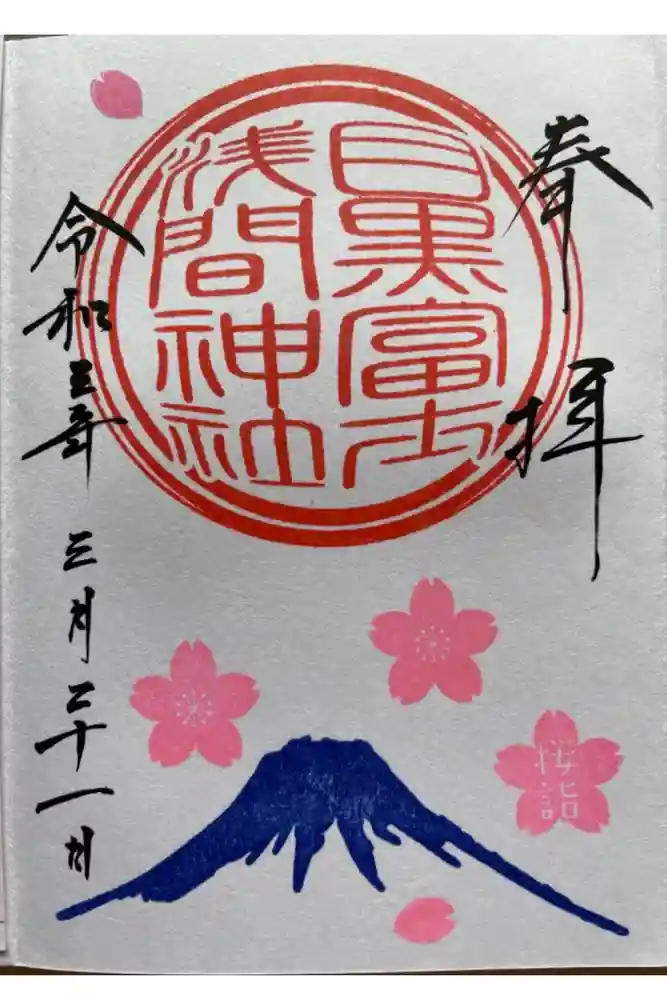 奉拝
目黒富士
浅間神社
令和三年 三月二十一日
桜詣